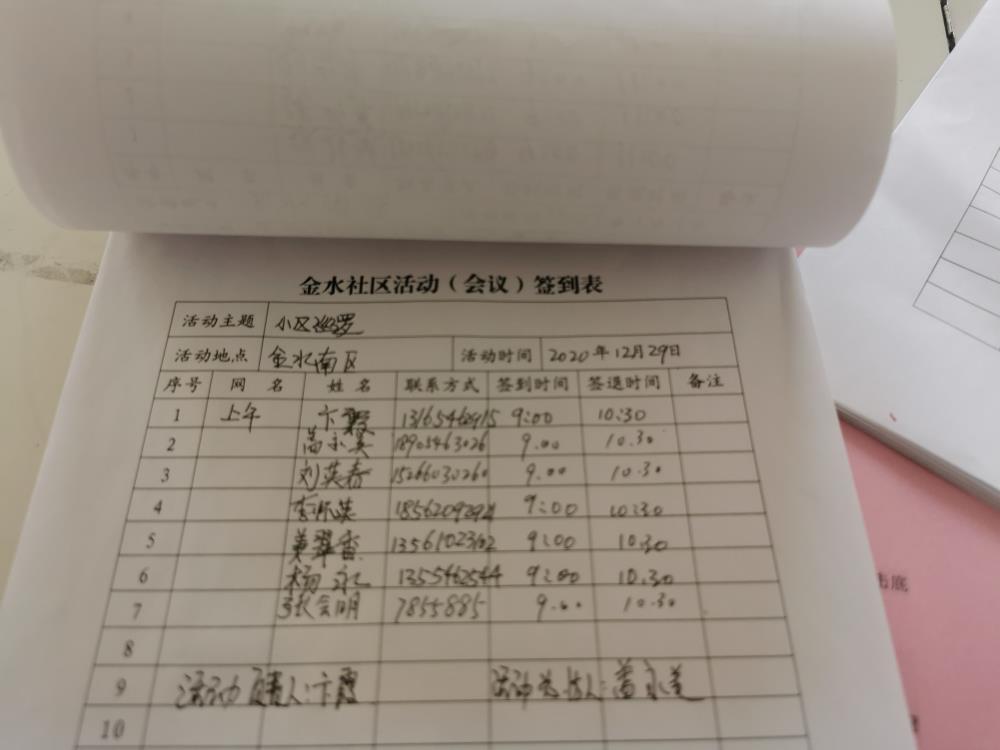 金水社区活动（会议）签到表
活动主题 小区巡逻
活动地点 金水南区 活动时间 2020年12月29日
序号 网 名 姓 名 联系方式 签到时间 签退时间 备注
1 上午 卞霞 9:00 10:30
2 18905463026 9.00 10.30
3 刘英春 15266030260 9.00 10.30
4 9:00 10:30
5 黄翠香 9:00 10.30
6 杨永 1355462544 9:00 10.30
7 张会明 7855885 9.00 10.30
8
9 活动负责人:卞霞 活动 人:
10
底